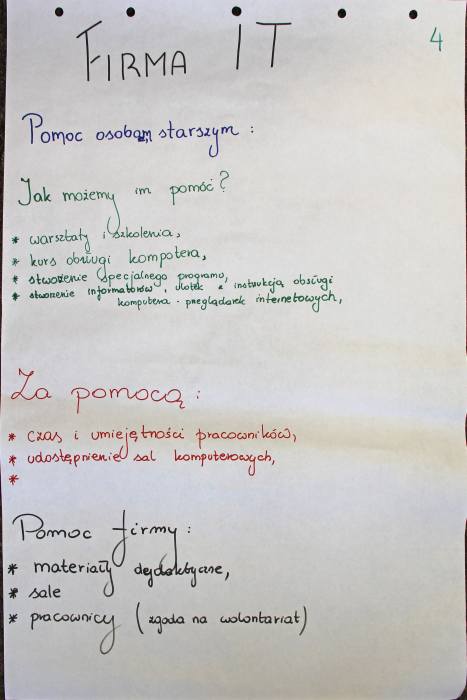 FIRMA IT
4
Pomoc osobom starszym :
Jak możemy im pomóc?
* warsztaty i szkolenia,
* kurs obsługi komputera,
* stworzenie specjalnego programu,
* stworzenie informatorów, ulotek z instrukcją obsługi
komputera - przeglądarek internetowych,
Za pomocą :
* czas i umiejętności pracowników,
* udostępnienie sal komputerowych,
*
Pomoc firmy :
* materiały dydaktyczne,
* sale
* pracownicy (zgoda na wolontariat)